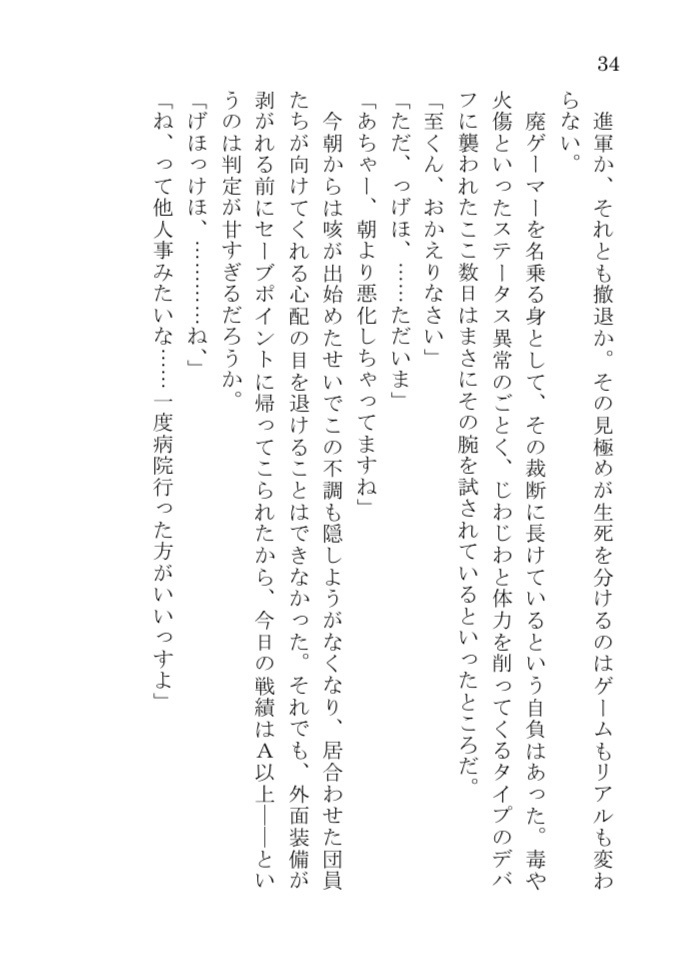 34
　進軍か、それとも撤退か。その見極めが生死を分けるのはゲームもリアルも変わ
らない。
　廃ゲーマーを名乗る身として、その裁断に長けているという自負はあった。毒や
火傷といったステータス異常のごとく、じわじわと体力を削ってくるタイプのデバ
フに襲われたここ数日はまさにその腕を試されているといったところだ。
「至くん、おかえりなさい」
「ただ、っげほ、……ただいま」
「あちゃー、朝より悪化しちゃってますね」
　今朝からは咳が出始めたせいでこの不調も隠しようがなくなり、居合わせた団員
たちが向けてくれる心配の目を退けることはできなかった。それでも、外面装備が
剥がれる前にセーブポイントに帰ってこられたから、今日の戦績はA以上――とい
うのは判定が甘すぎるだろうか。
「げほっけほ、…………ね、」
「ね、って他人事みたいな……一度病院行った方がいいっすよ」